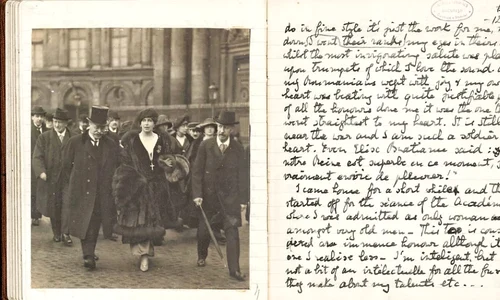 do in fine style it's just the work for me,
down I went their ranks, my eyes in theirs
whilst the most invigorating salute was
upon trumpets of which I love the sound.
my Roumanians wept with joy & my own
heart was beating with quite justifiable
of all the honours done me it was the one
went straightest to my heart. It is still
near the war and I am such a soldier
heart. Even Elise Bratianu said:
notre Reine est superbe en ce moment,
vraiment envie de pleurer!"
I came home for a short while and th
started off for the séance of the Acade
where I was admitted as only woman
amongst very old men — This too is cons
dered an immense honour although it
one I realise less — I'm intelligent, but
not a bit of an intellectuelle for all the
they make about my talents etc...